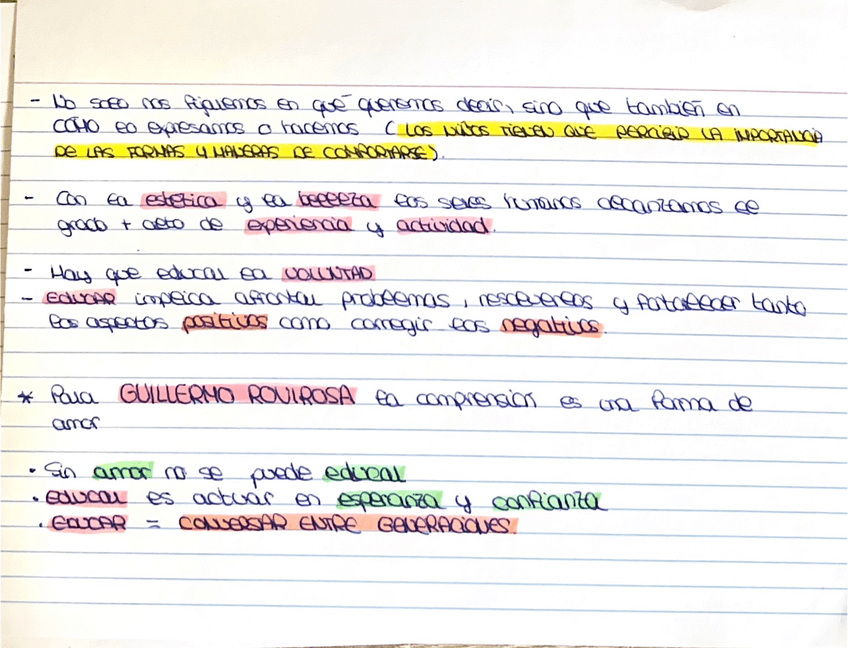 - No solo nos fijaremos en qué queremos decir, sino que también en
CÓMO lo expresamos o hacemos (LOS NIÑOS TIENEN QUE PERCIBIR LA IMPORTANCIA
DE LAS FORMAS Y MANERAS DE COMPORTARSE).
- Con la estética y la belleza los seres humanos alcanzamos el
grado + alto de experiencia y actividad.
- Hay que educar la VOLUNTAD
- EDUCAR implica afrontar problemas, resolverlos y fortalecer tanto
los aspectos positivos como corregir los negativos.
* Para GUILLERMO ROVIROSA la comprensión es una forma de
amor
· Sin amor no se puede educar
· EDUCAR es actuar en esperanza y confianza
· EDUCAR = CONVERSAR ENTRE GENERACIONES.